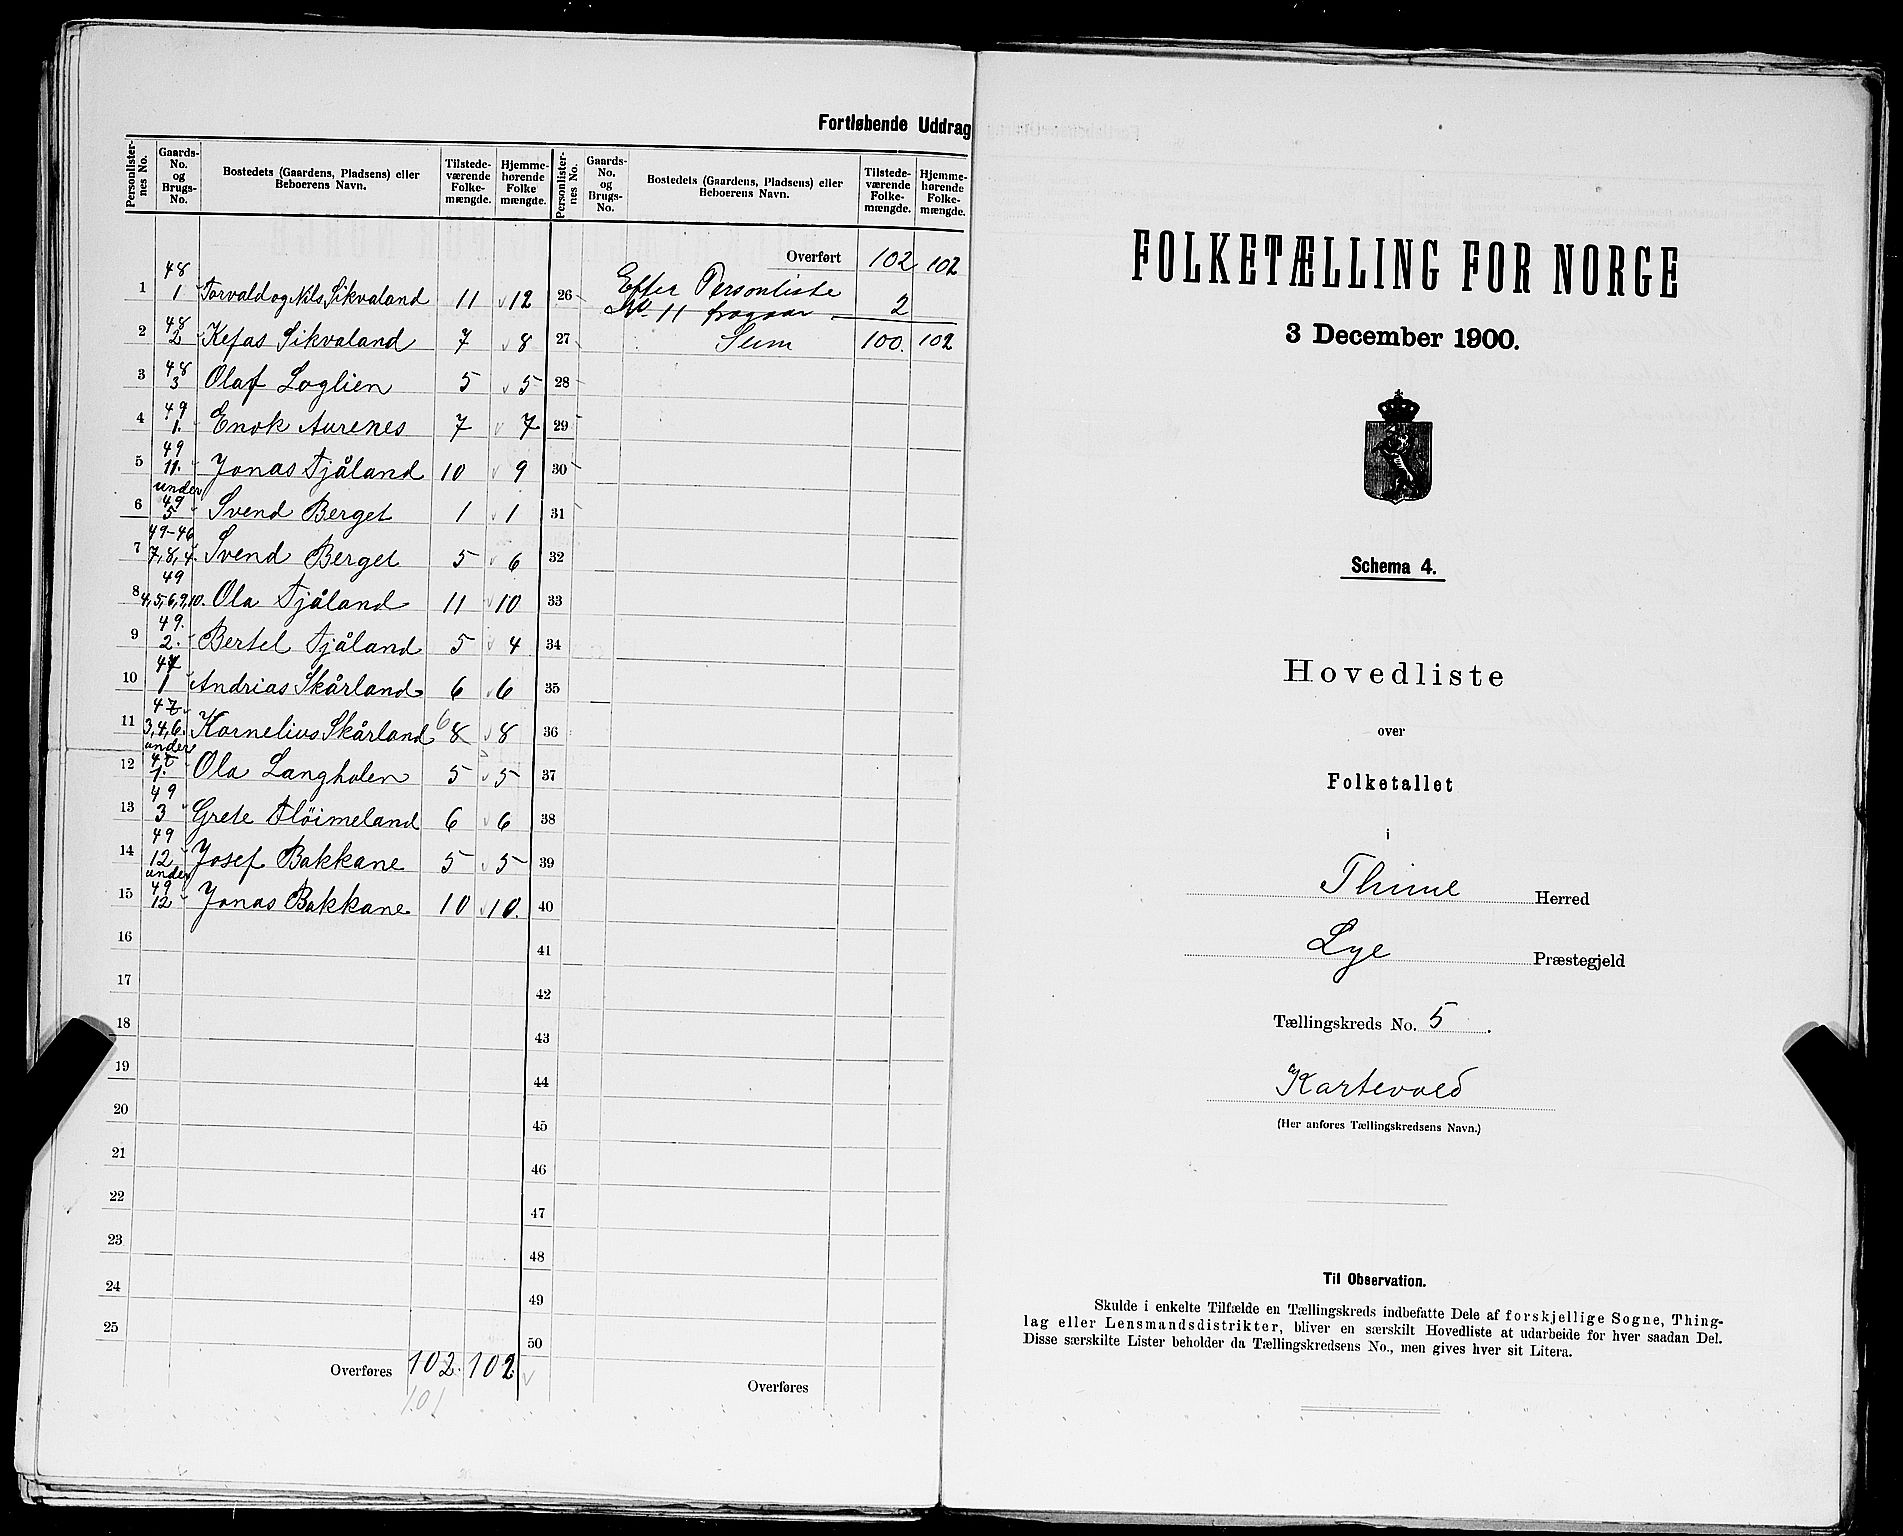 Fortløbende Uddrag
Personlister-nes No. | Gaards-No. og Brugs-No. | Bostedets (Gaardens, Pladsens) eller Beboerens Navn. | Tilstede-værende Folke-mængde. | Hjemme-hørende Folke mængde. | Personlister-nes No. | Gaards-No. og Brugs-No. | Bostedets (Gaardens, Pladsens) eller Beboerens Navn. | Tilstede-værende Folke-mængde. | Hjemme-hørende Folke-mængde.
Overført 102 102
1 48 1 Torvald og Nils Sikvaland 11 12
2 48 2 Kefas Sikvaland 7 8
3 48 3 Olaf Loglien 5 5
4 49 1. Enok Aurenes 7 7
5 49 11. Jonas Tjåland 10 9
6 under 49 5 Svend Berget 1 1
7 49-46 7,8,4. Svend Berget 5 6
8 49 4,5,6,9,10. Ola Tjåland 11 10
9 49. 2. Bertel Tjåland 5 4
10 47 1 Andrias Skårland 6 6
11 47 3,4,6. Kornelius Skårland 6 8 8
12 under 47 1. Ola Langholen 5 5
13 49 3 Grete Fløimeland 6 6
14 49 12 Josef Bakkane 5 5
15 under 49 12 Jonas Bakkane 10 10.
16
17
18
19
20
21
22
23
24
25
Overføres 102. 102.
101
26 Efter Personliste
No 11 fragaar 2
27 Sum 100. 102
28
29
30
31
32
33
34
35
36
37
38
39
40
41
42
43
44
45
46
47
48
49
50
Overføres
FOLKETÆLLING FOR NORGE
3 December 1900.
Schema 4.
Hovedliste
over
Folketallet
i
Thime Herred
Lye Præstegjeld
Tællingskreds No. 5.
Kartevold
(Her anføres Tællingskredsens Navn.)
Til Observation.
Skulde i enkelte Tilfælde en Tællingskreds indbefatte Dele af forskjellige Sogne, Thing-
lag eller Lensmandsdistrikter, bliver en særskilt Hovedliste at udarbeide for hver saadan Del.
Disse særskilte Lister beholder da Tællingskredsens No., men gives hver sit Litera.